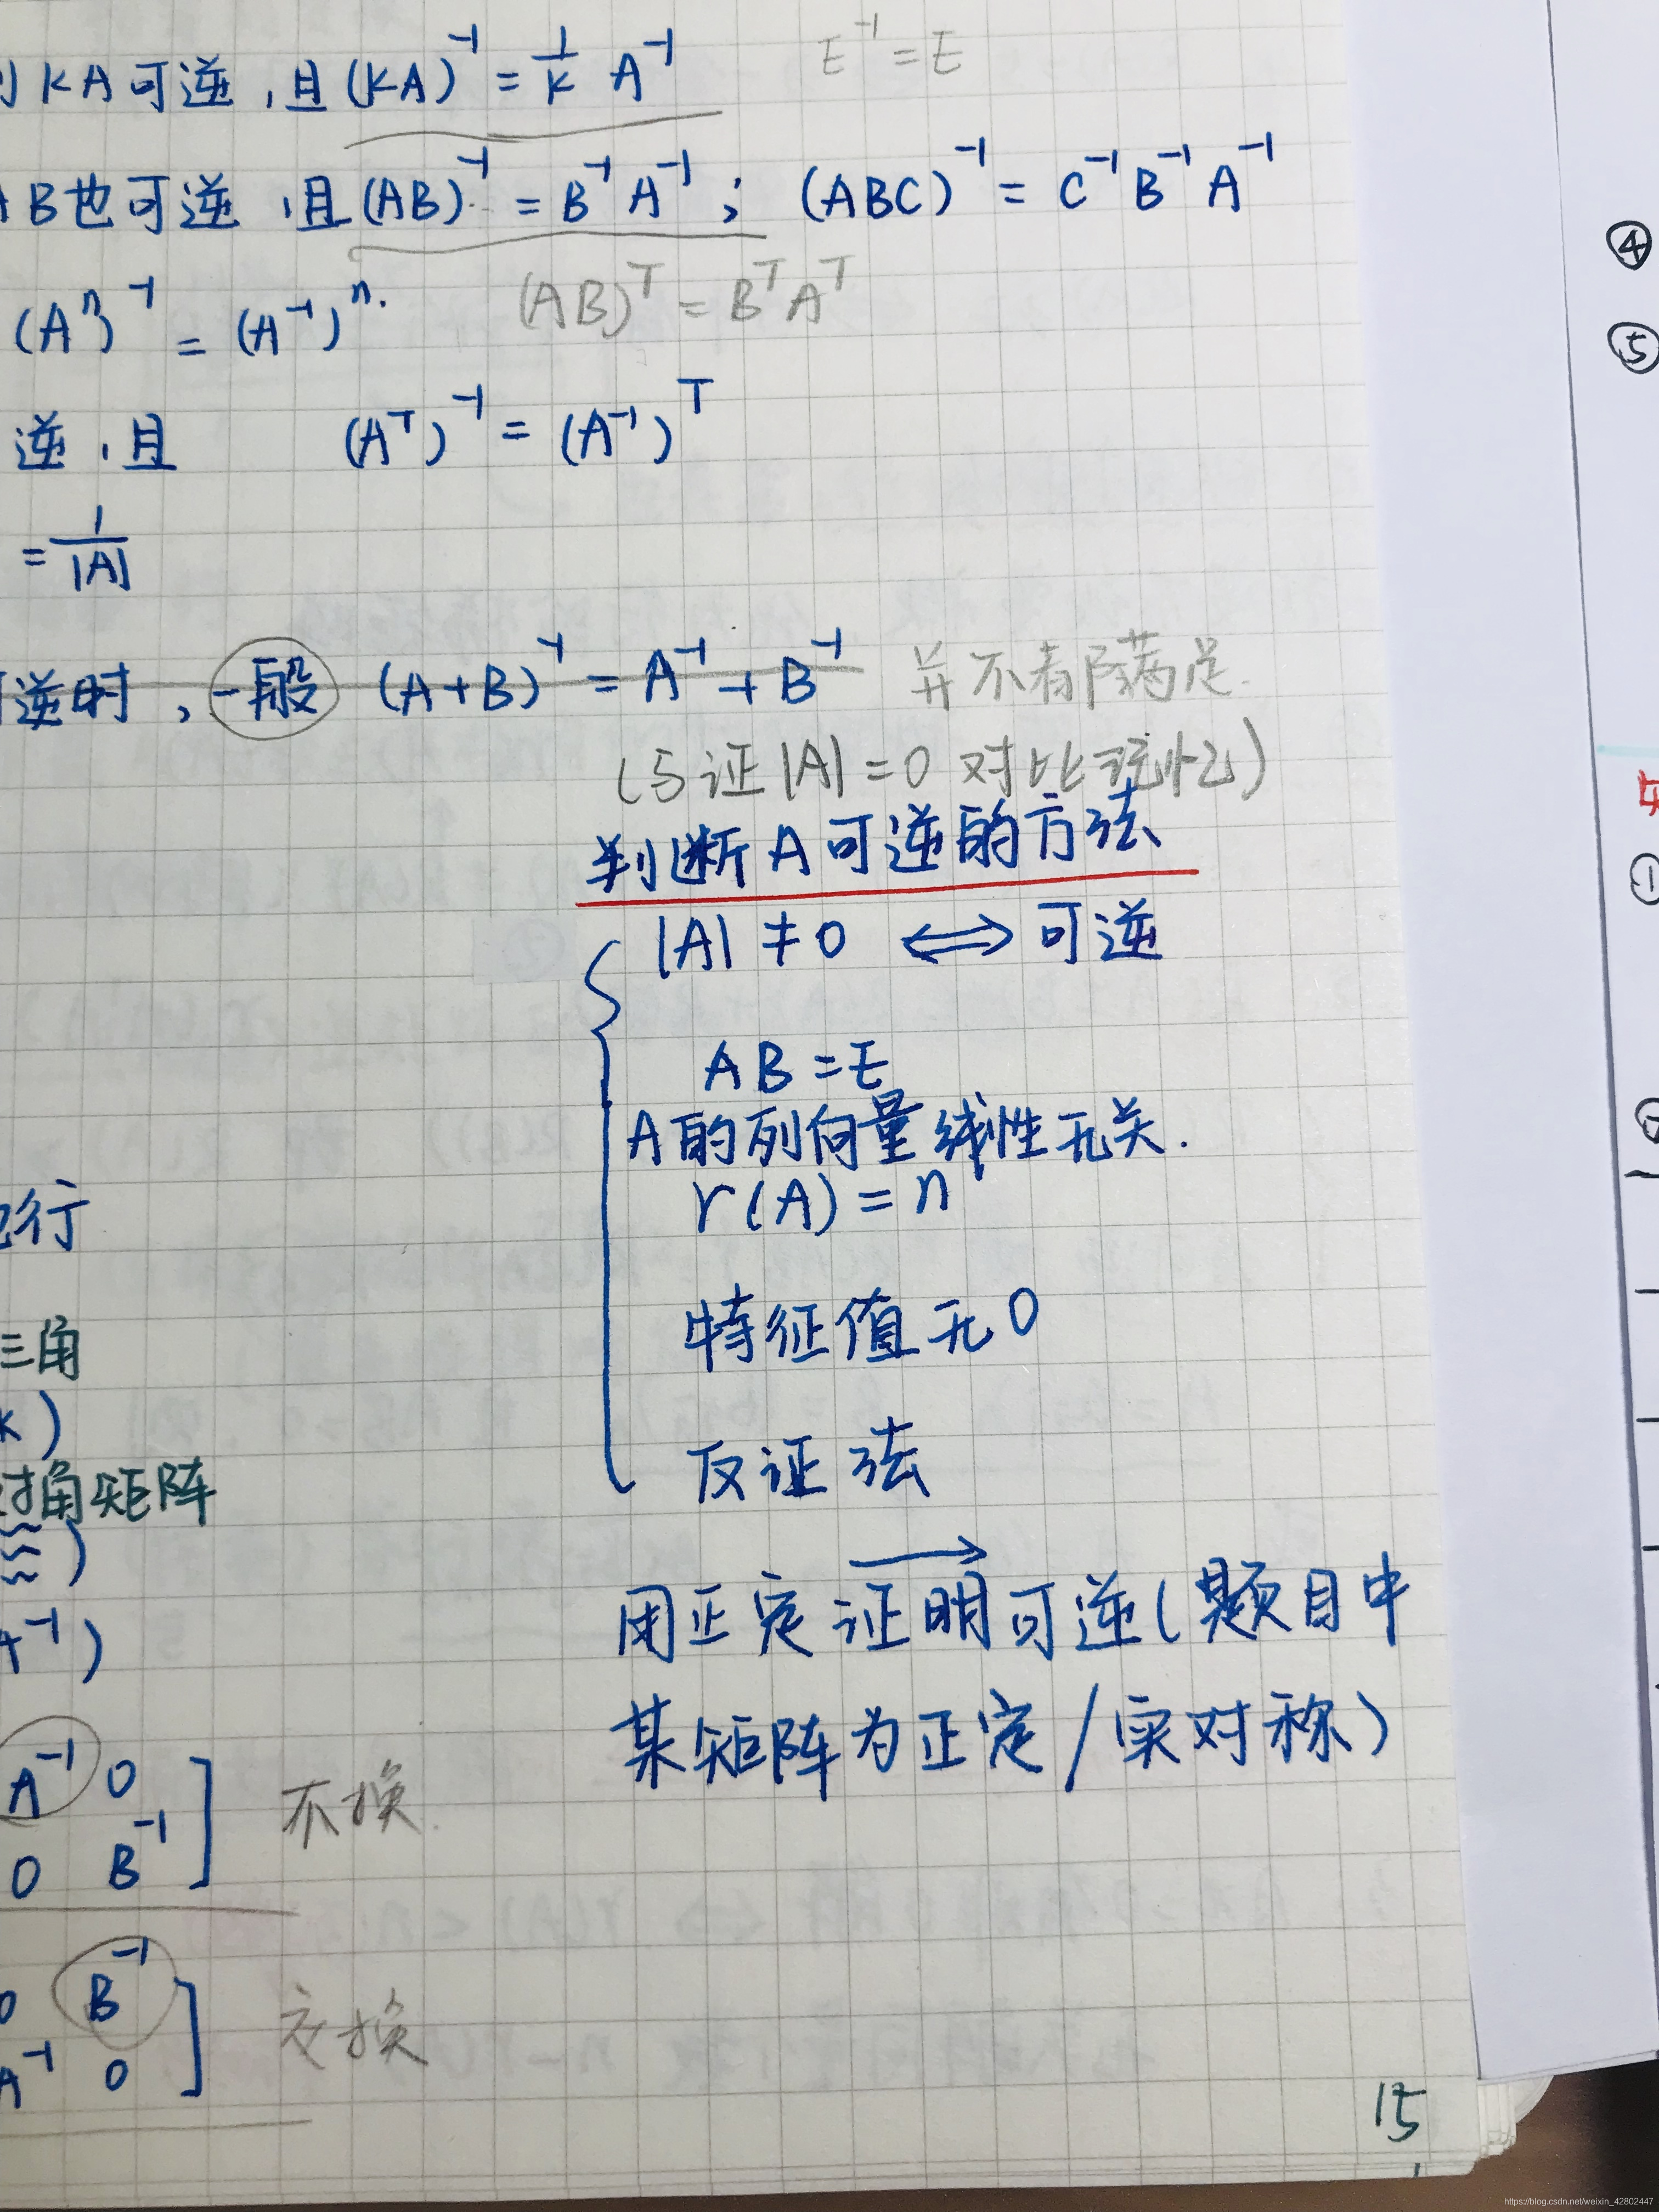 KA可逆,且(KA)⁻¹ = 1/K A⁻¹ E⁻¹=E
B也可逆,且(AB)⁻¹ = B⁻¹A⁻¹; (ABC)⁻¹ = C⁻¹B⁻¹A⁻¹
(AB)ᵀ = BᵀAᵀ
(Aⁿ)⁻¹ = (A⁻¹)ⁿ.
逆,且 (Aᵀ)⁻¹ = (A⁻¹)ᵀ
= 1/|A|
逆时,一般 (A+B)⁻¹ = A⁻¹+B⁻¹ 并不都满足.
(与证|A|=0 对比记忆)
判断A可逆的方法
|A|≠0 ⟺ 可逆
AB=E
A的列向量线性无关.
r(A)=n
特征值无0
反证法
用正定证明可逆(题目中
某矩阵为正定/实对称)
行
三角
)
对角矩阵
)
⁻¹)
A⁻¹ 0
0 B⁻¹ ] 不换.
0 B⁻¹
A⁻¹ 0 ] 交换
15
④
⑤
①
②
https://blog.csdn.net/weixin_42802447